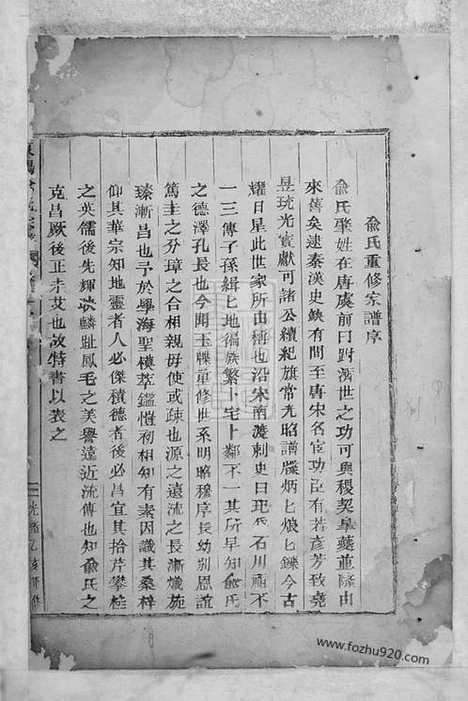 俞氏重修家譜序
俞氏肇姓在唐虞前曰跗濟世之功可與稷契臯夔並隆由
來舊矣逮秦漢史缺有間至唐宋名宦功臣有若彥芳致堯
昱琉光宦獻可諸公續紀旗常光昭譜牒炳乜燬乜鑠今古
耀日星此世家所由傳也沿宋南渡刺史日玭氏石川兩不
一三傳子孫緝乜地徧族繁卜宅卜鄰不一其所早知俞氏
之德澤孔長也今聞玉牒重修世系明昭穆序長幼別恩誼
篤圭之分璋之合相親毋使或疎也源之遠流之長漸熾施
臻漸昌也予於學海聖模萃鑑愷初相知有素因識其桑梓
仰其華宗知地靈者人必傑積德者後必昌宜其拾芹攀桂
之英儒後先輝映麟趾鳳毛之美譽遠近流傳也知俞氏之
克昌厥後正未艾也故特書以表之
光緒乙
www.fozhu920.com